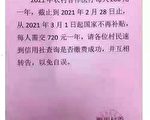 2021年农村合作医疗每人280元
一年，截止到 2021 年 2 月 28 日止，
从 2021 年 3 月 1 起国家不再补贴，
每人需交 720 元一年，请各位村民速
到信用社查询是否缴费成功，并互相
转告，以免自误。